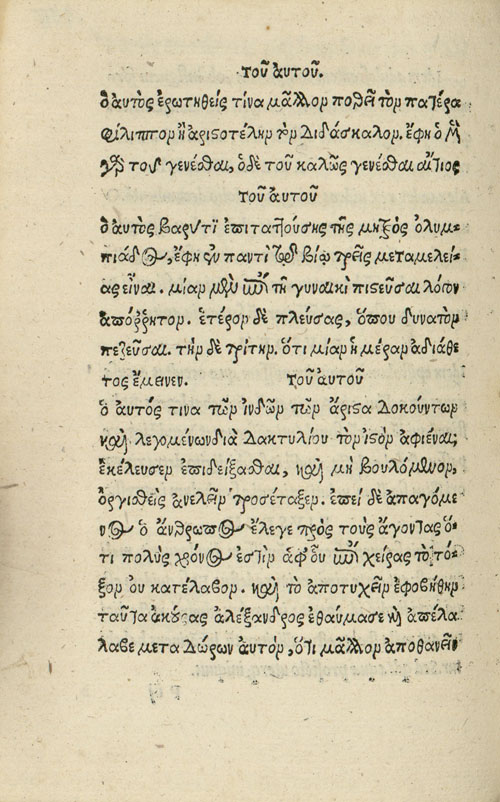 τοῦ ἀυτοῦ.
ὁ αυτὸς ἐρωτηθεὶς τίνα μᾶλλον ποθεῖ τὸν πατέρα
φίλιππον ἢ ἀριστοτέλην τὸν διδάσκαλον. ἔφη ὁ μὲν
γὰρ τοῦ γενέσθαι, ὁ δὲ τοῦ καλῶς γενέσθαι αἴτιος
τοῦ αυτοῦ
ὁ αυτὸς βαρύ τϊ ἐπιταττούσης τῆς μητρὸς ὀλυμ-
πιάδος, ἔφη ἐν παντὶ τῷ βίῳ τρεῖς μεταμελεί-
ας εἶναι. μίαν μὲν ἐπὶ τῇ γυναικὶ πιστεῦσαι λόγον
ἀπόῤῥητον. ἑτέραν δὲ πλεύσας, ὅπου δυνατὸν
πεζεῦσαι. τὴν δὲ τρίτην. ὅτι μίαν ἡμέραν ἀδιάθε
τος ἔμεινεν. τοῦ ἀυτοῦ
ὁ ἀυτός τινα τῶν ἰνδῶν τῶν ἄριστα δοκούντων
καὶ λεγομένων διὰ δακτυλίου τὸν ἰστὸν ἀφιέναι;
ἐκέλευσεν ἐπιδείξασθαι, καὶ μὴ βουλόμενον,
ὀργισθεὶς ἀνελεῖν προσέταξεν. ἐπεὶ δὲ απαγόμε
νος ὁ ἄνθρωπος ἔλεγε πρὸς τοὺς ἄγοντας ὅ-
τι πολὺς χρόνος ἐστὶν ἀφ' οὗ ἐπὶ χεῖρας τὸ τό-
ξον ου κατέλαβον. καὶ τὸ ἀποτυχεῖν ἐφοβήθην
ταῦτα ἀκούσας ἀλέξανδρος ἐθαύμασε καὶ ἀπέλα
λαβε μετὰ δώρων ἀυτὸν, ὅτι μᾶλλον ἀποθανεῖν